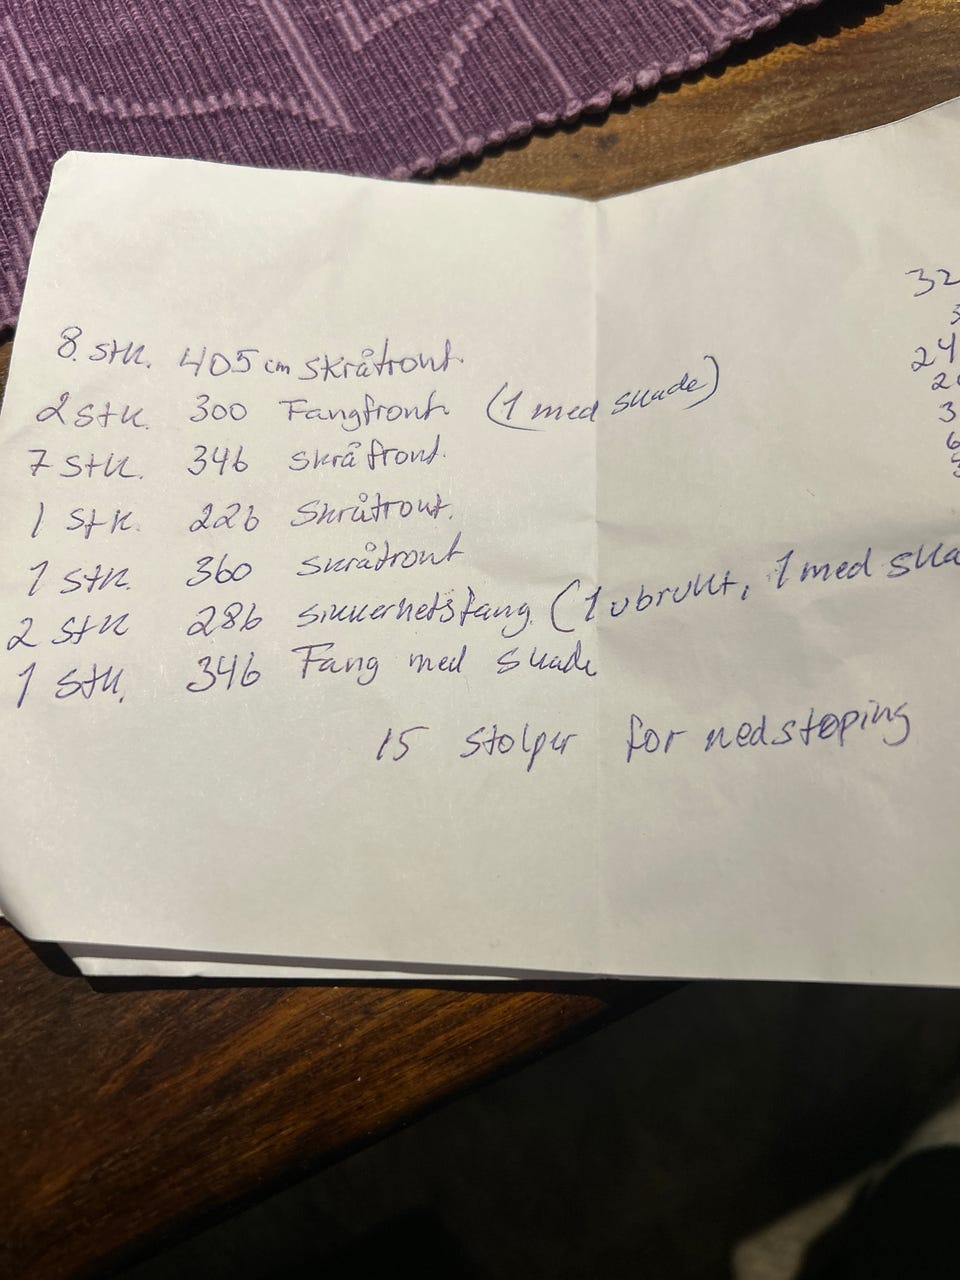 8. stk. 405 cm skråfront.
2 stk. 300 Fangfront (1 med skade)
7 stk. 346 skråfront.
1 stk. 226 Skråfront.
1 stk. 360 skråfront
2 stk 286 sikkerhetsfang. (1 ubrukt, 1 med
1 stk. 346 Fang med skade
15 stolper for nedstøping